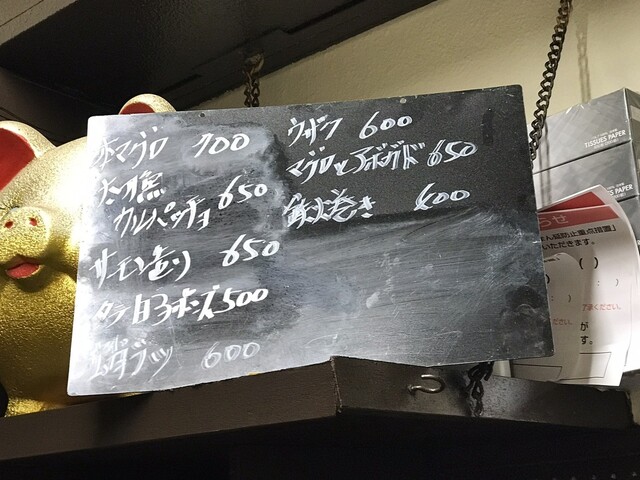 本マグロ 700
太刀魚
カルパッチョ 650
サーモン造り 650
タラ白子ポン酢 500
ブツ 600
ウザク 600
マグロとアボガド 650
巻き 600
TISSUES PAPER
TISSUES PAPER
らせ
まん延防止重点措置」
いただきます。
( )
ください。
が
す。